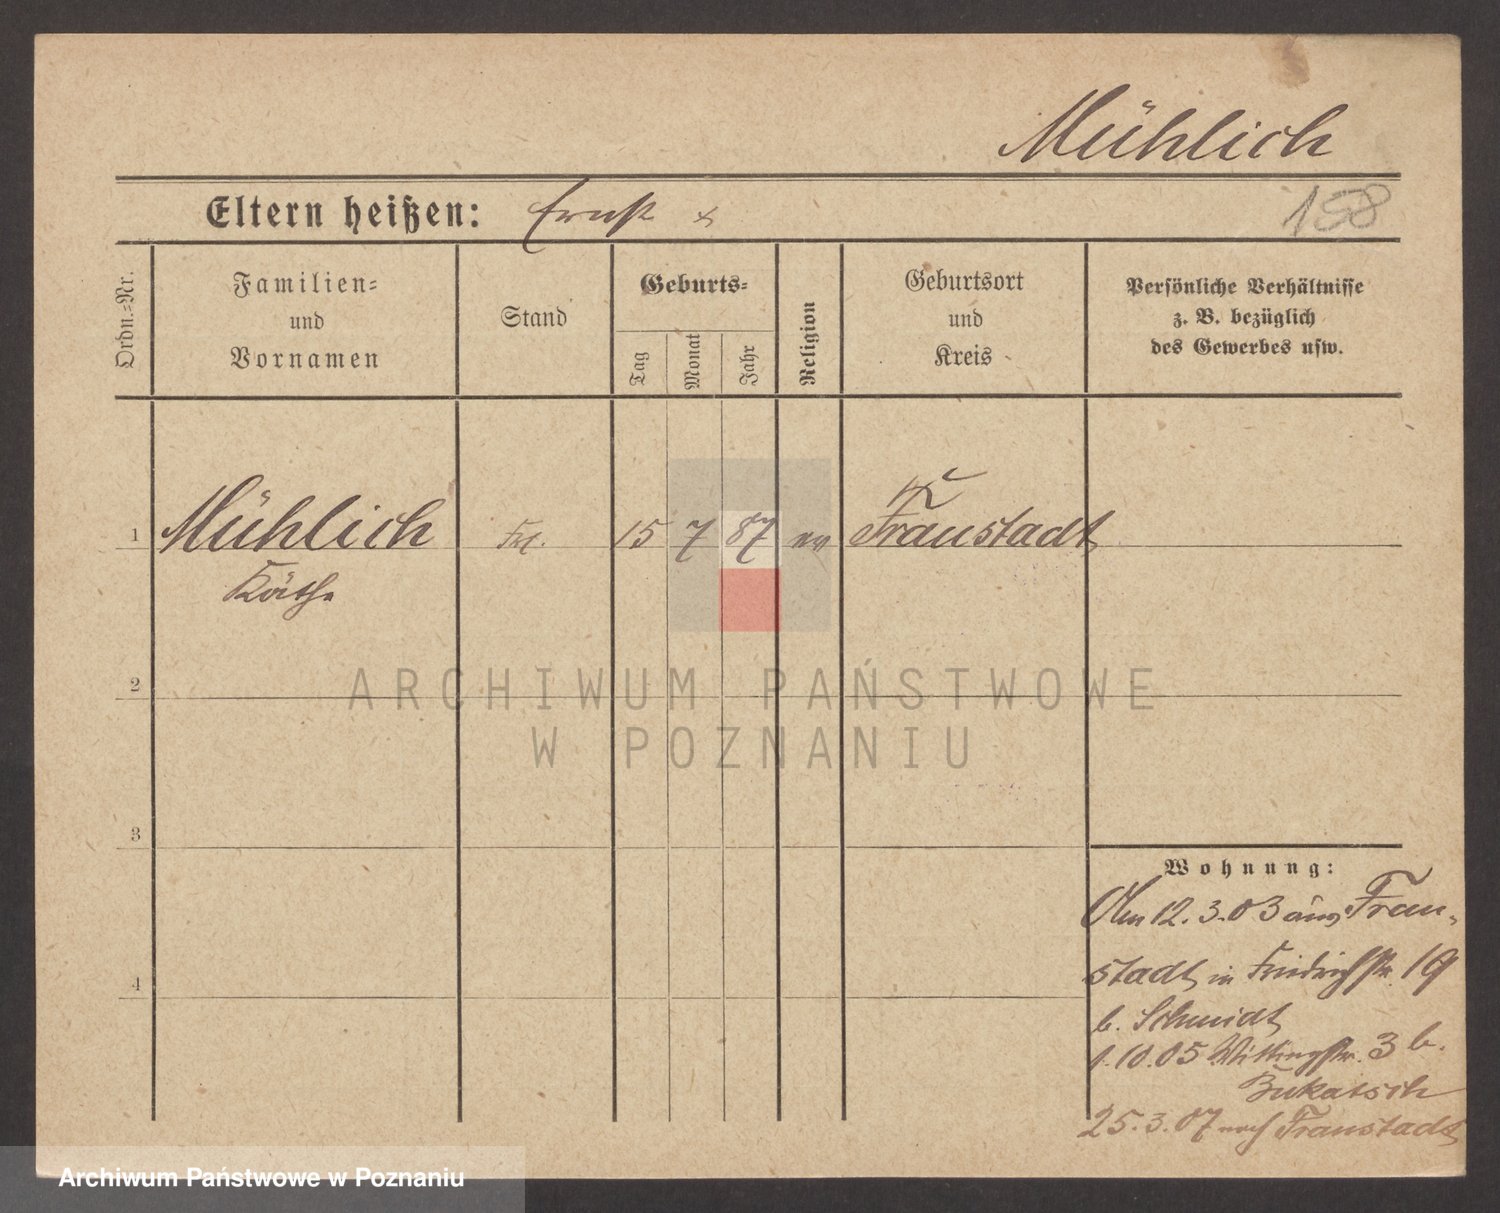 Mühlich
Eltern heißen: Ernst x
158
Ordn.-Nr.
Familien-
und
Vornamen
Stand
Geburts-
Tag
Monat
Jahr
Religion
Geburtsort
und
Kreis
Persönliche Verhältnisse
z. B. bezüglich
des Gewerbes usw.
1 Mühlich Frl. 15 7 87 ev Fraustadt
Käthe
2
ARCHIWUM PAŃSTWOWE
W POZNANIU
3
4
Wohnung:
Am 12.3.03 aus Frau-
stadt in Friedrichstr. 19
b. Schmidt
1.10.05 Wittingstr. 3 b.
Bukatsch
25.3.07 nach Fraustadt
Archiwum Państwowe w Poznaniu